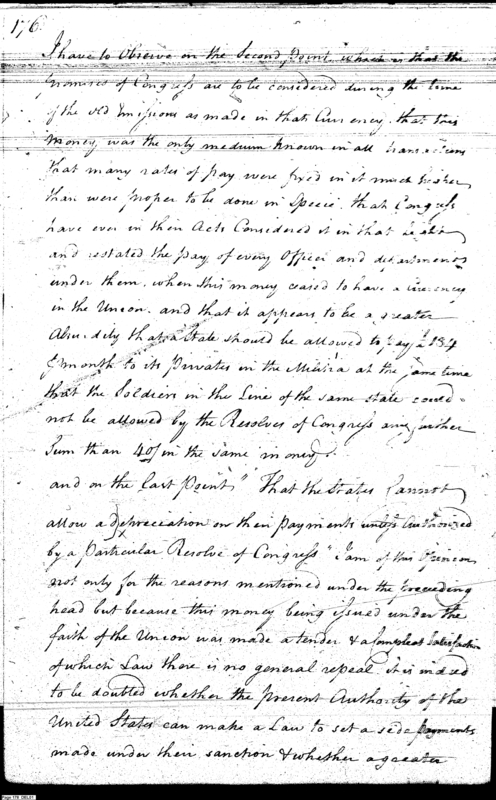 176
I have to Observe on the Second Point which is that the
promises of Congress are to be considered during the time
of the old Emissions as made in that Currency. that this
money was the only medium known in all transactions
that many rates of pay were fixed in it much higher
than were proper to be done in Specie. that Congress
have ever in their Acts Considered it in that light
and restated the pay of every Officer and departments
under them. when this money ceased to have a Currency
in the Union. and that it appears to be a greater
Absurdity that a State should be allowed to pay
month to its Privates in the Militia at the same time
that the Soldiers in the Line of the same state could
not be allowed by the Resolves of Congress any further
Sum than 40/ in the same money.
and on the last Point "That the States Cannot
allow a depreciation on their payments unless Authorized
by a Particular Resolve of Congress" I am of this Opinion
not only for the reasons mentioned under the preceeding
head but because this money being issued under the
faith of the Union was made a tender & a Compleat Satisfaction
of which Law there is no general repeal. it is indeed
to be doubted whether the Present Authority of the
United States can make a Law to set a side Payments
made under their sanction & whether a greater